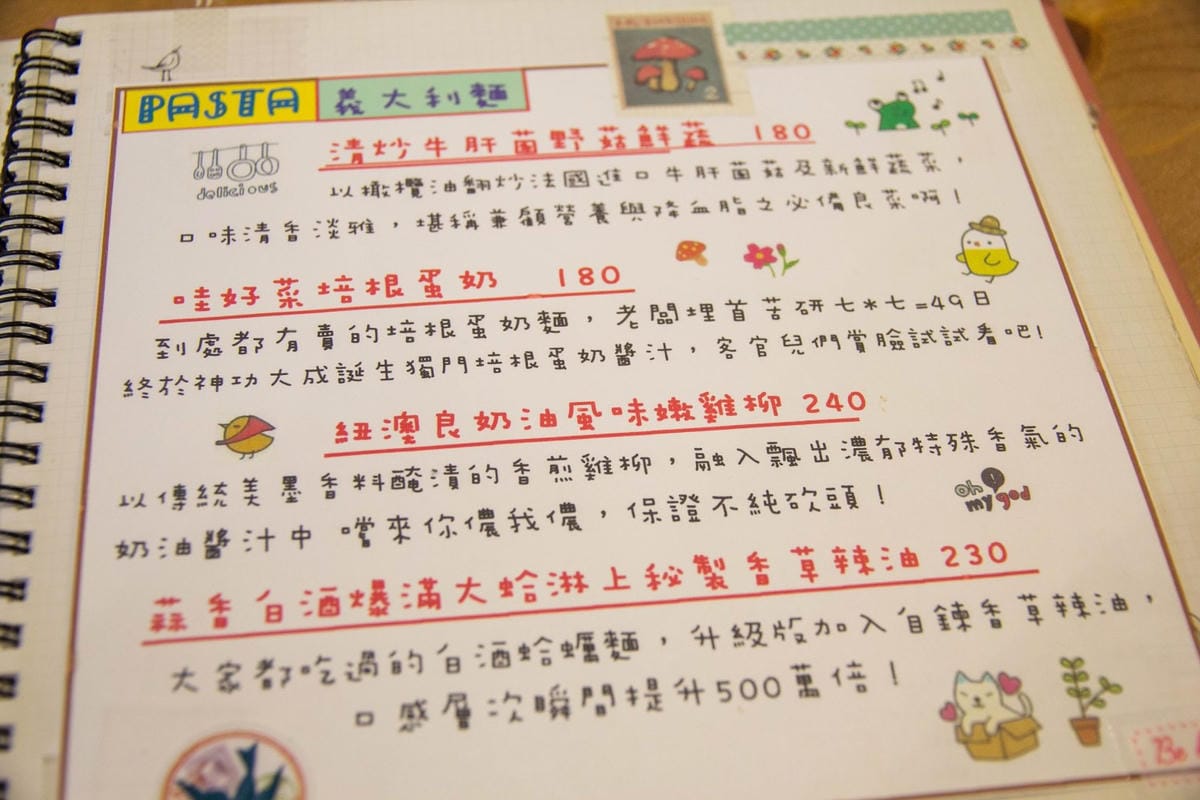 PASTA 義大利麵
delicious
清炒牛肝菌野菇鮮蔬 180
以橄欖油翻炒法國進口牛肝菌菇及新鮮蔬菜，
口味清香淡雅，堪稱兼顧營養與降血脂之必備良菜啊！
哇好菜培根蛋奶 180
到處都有賣的培根蛋奶麵，老闆埋首苦研七*七=49日
終於神功大成誕生獨門培根蛋奶醬汁，客官兒們賞臉試試看吧!
紐澳良奶油風味嫩雞柳 240
以傳統美墨香料醃漬的香煎雞柳，融入飄出濃郁特殊香氣的
奶油醬汁中 嚐來你儂我儂，保證不純砍頭！
oh my god
蒜香白酒爆滿大蛤淋上秘製香草辣油 230
大家都吃過的白酒蛤蠣麵，升級版加入自鍊香草辣油，
口感層次瞬間提升500萬倍！
Be